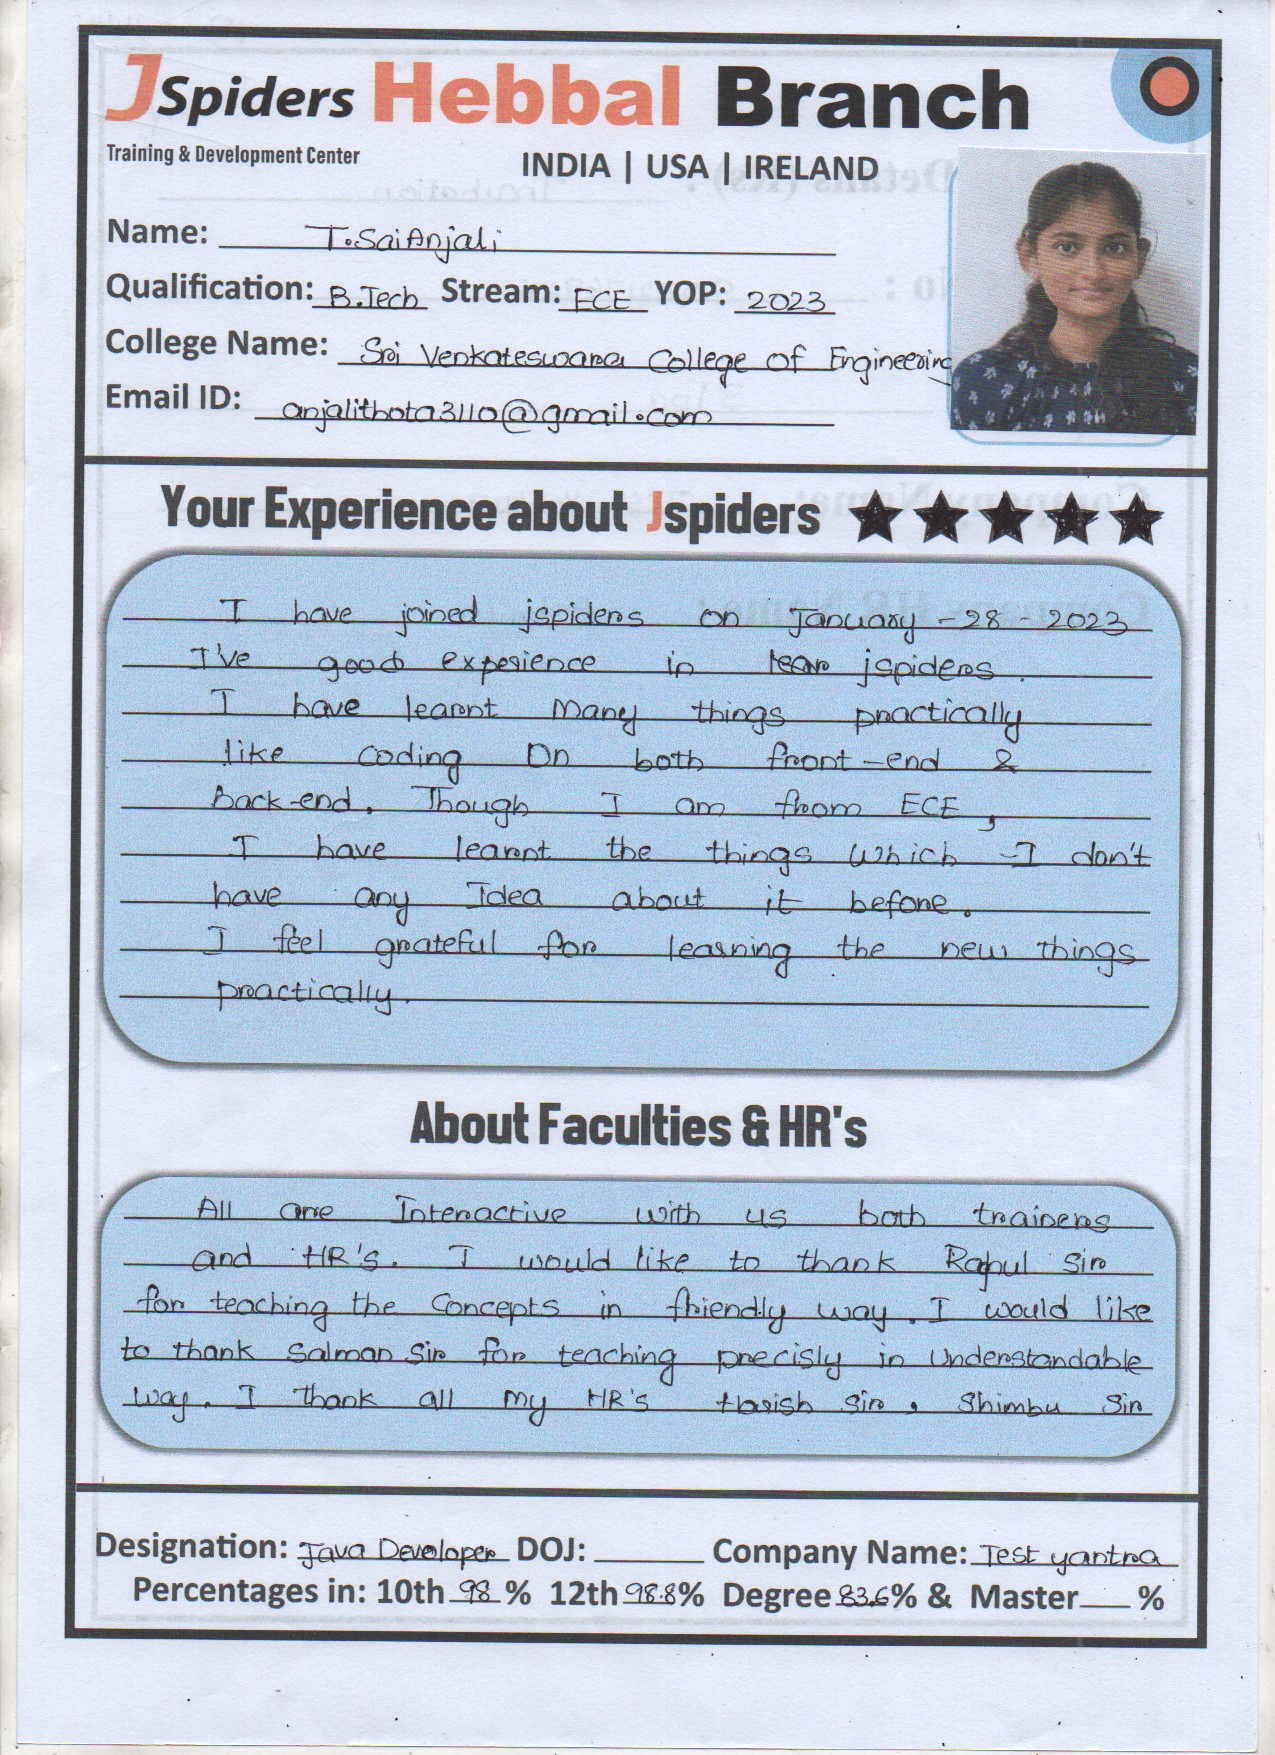 JSpiders Hebbal Branch
Training & Development Center
INDIA | USA | IRELAND
Name: T.Sai Anjali
Qualification: B.Tech Stream: ECE YOP: 2023
College Name: Sri Venkateswara College of Engineering
Email ID: anjalithota3110@gmail.com
Your Experience about Jspiders
I have joined jspiders on January-28-2023
I've good experience in jspiders.
I have learnt Many things practically
like coding On both front-end &
back-end. Though I am from ECE,
I have learnt the things which I don't
have any Idea about it before.
I feel grateful for learning the new things
practically.
About Faculties & HR's
All are Interactive with us both trainers
and HR's. I would like to thank Rahul Sir
for teaching the Concepts in friendly way. I would like
to thank Salman Sir for teaching precisly in Understandable
way. I thank all my HR's Harish Sir, Shimbu Sir
Designation: Java Developer DOJ: Company Name: Test yantra
Percentages in: 10th 98 % 12th 98.8% Degree 83.6% & Master %